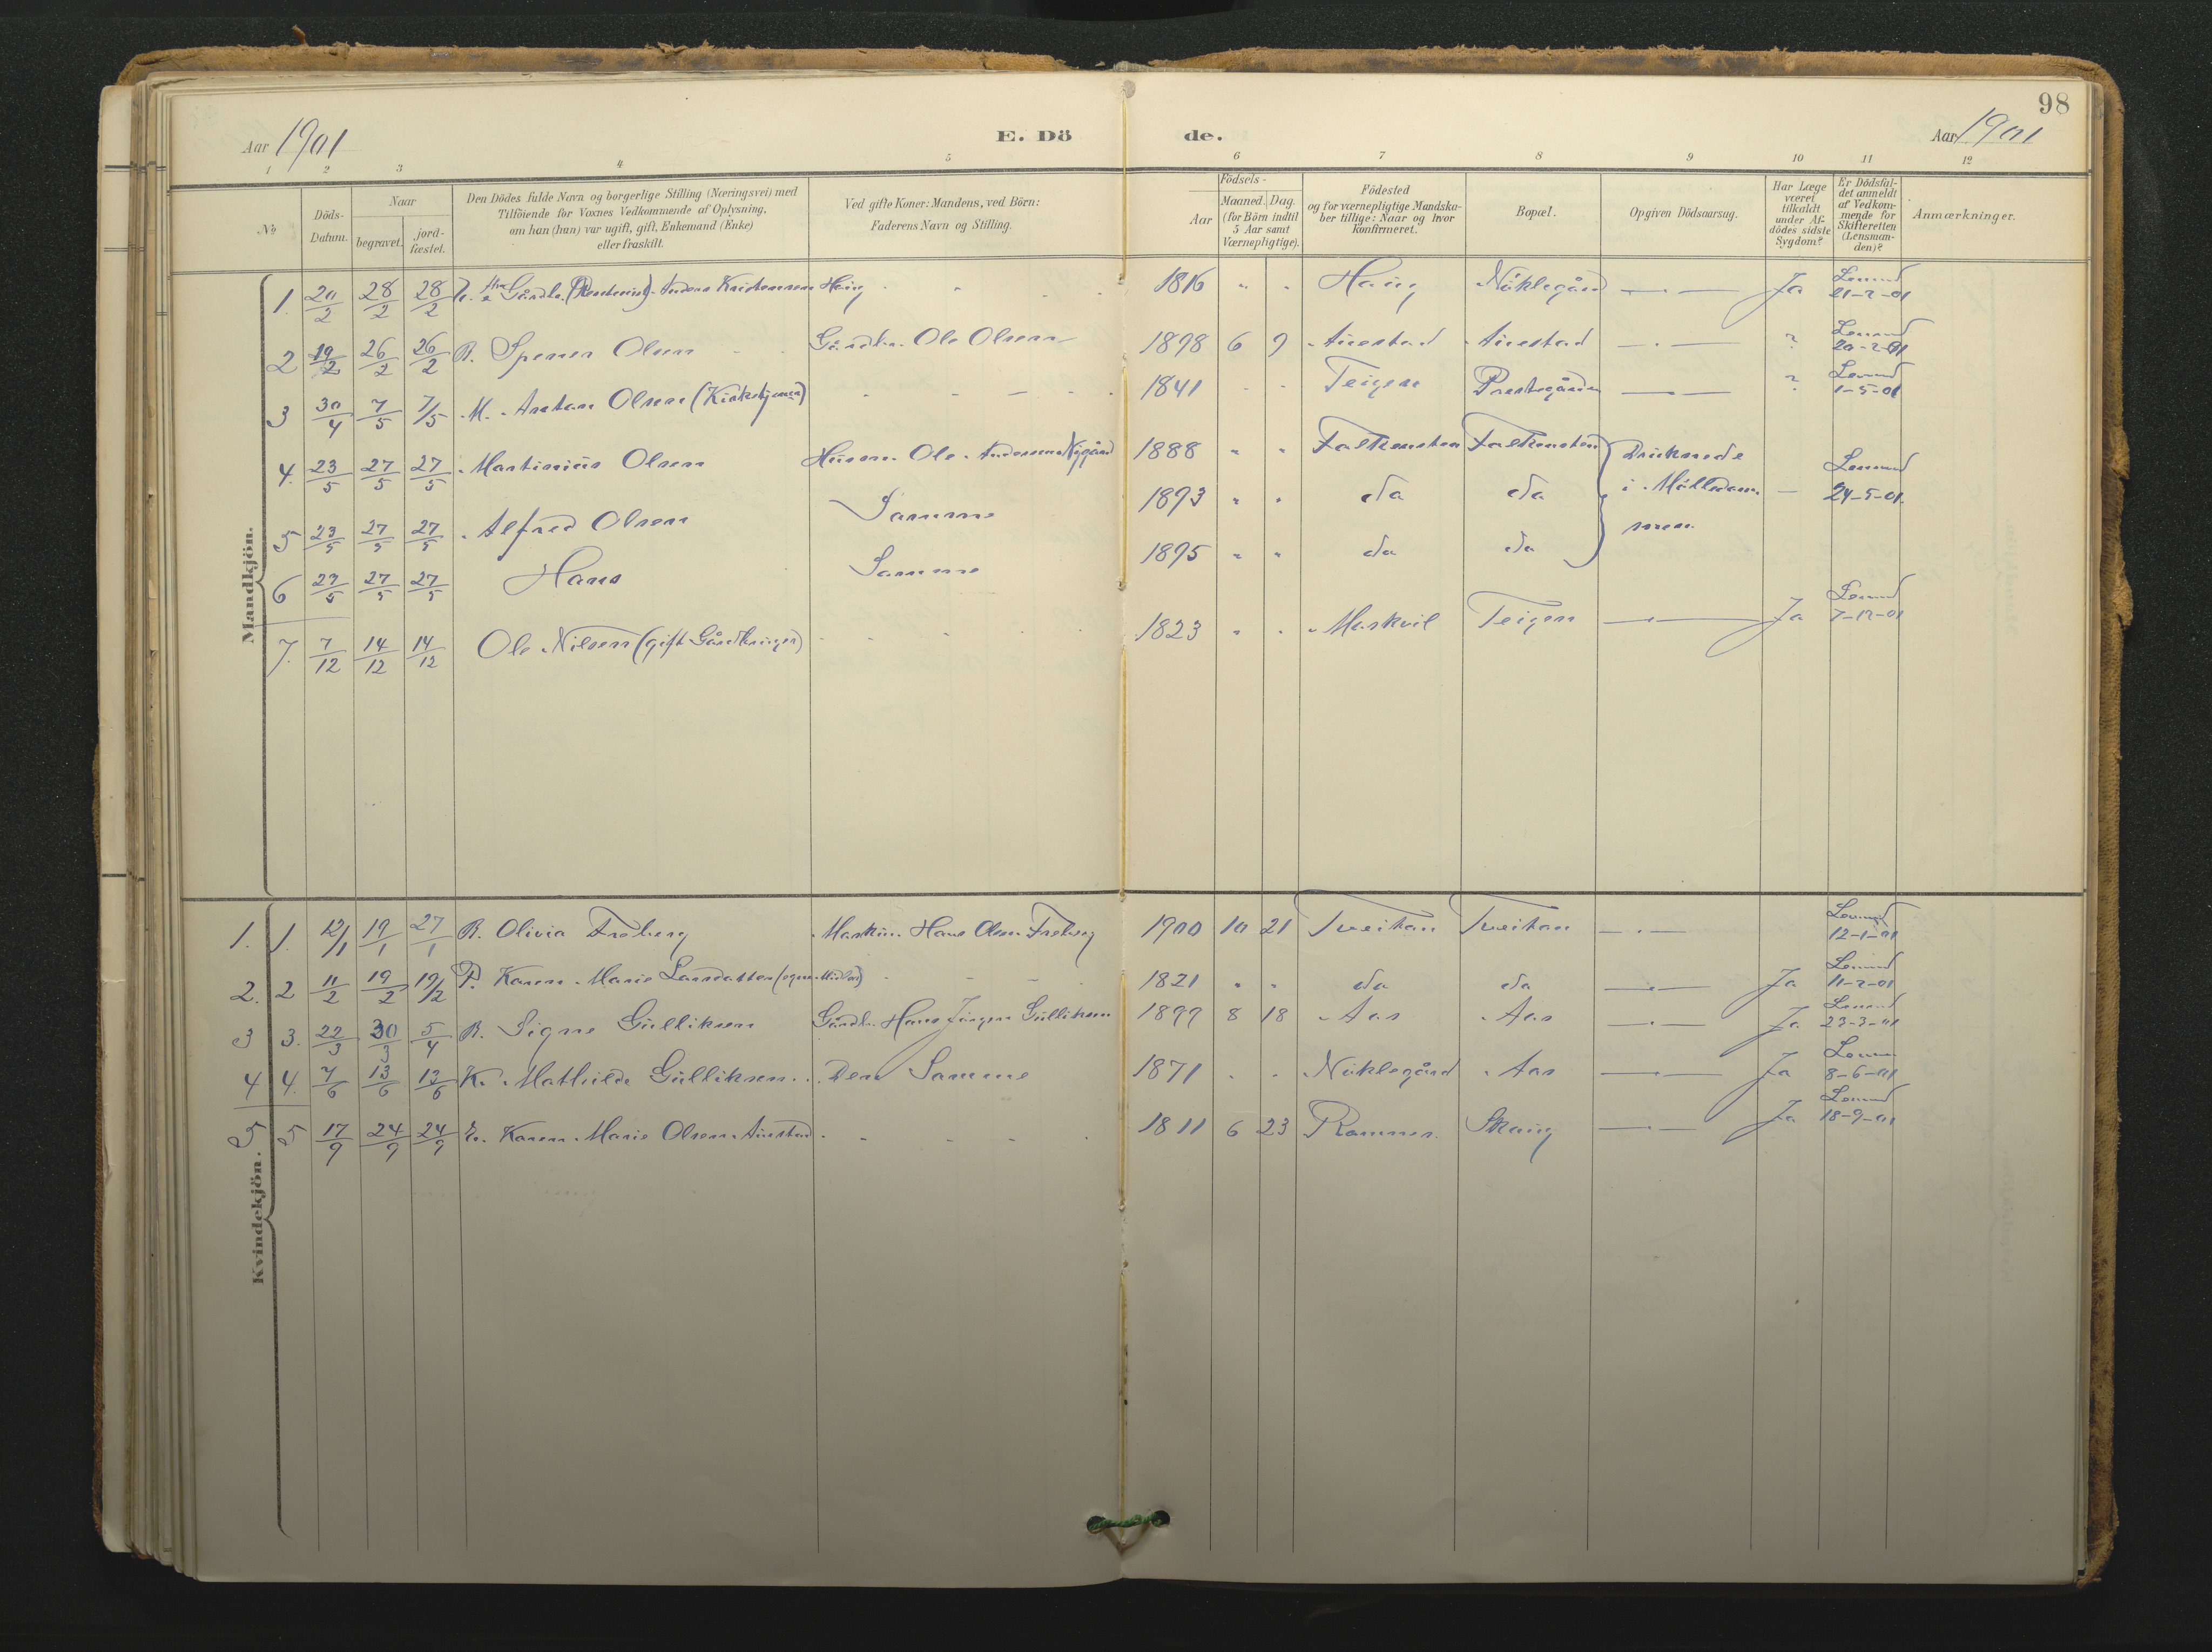 98
Aar 1901 E. Dö de. Aar 1901
1 2 3 4 5 6 7 8 9 10 11 12
№
Döds-Datum.
Naar
begravet.
jord-fæstet.
Den Dödes fulde Navn og borgerlige Stilling (Næringsvei) med
Tilföiende for Voxnes Vedkommende af Oplysning,
om han (hun) var ugift, gift, Enkemand (Enke)
eller fraskilt.
Ved gifte Koner: Mandens, ved Börn:
Faderens Navn og Stilling.
Födsels-
Aar
Maaned. Dag.
(for Börn indtil
5 Aar samt
Værnepligtige).
Födested
og for værnepligtige Mandska-
ber tillige: Naar og hvor
Konfirmeret.
Bopæl.
Opgiven Dödsaarsag.
Har Læge
været
tilkaldt
under Af-
dödes sidste
Sygdom?
Er Dödsfal-
det anmeldt
af Vedkom-
mende for
Skifteretten
(Lensman-
den)?
Anmærkninger.
Mandkjön.
1. 20/2 28/2 28/2 Gårdbr. Anders Kristensen Haug 1816 " " Haug Nöklegård — Ja 21-2-01
2 19/2 26/2 26/2 B. Olsen Gårdbr. Ole Olsen 1898 6 9 Auestad Auestad — ? 20-2-01
3 30/4 7/5 7/5 M. Anstan Olsen (Kirketjener) 1841 Teigen Prestegården — ? 1-5-01
4. 23/5 27/5 27/5 Martinius Olsen Husm. Ole Andersen Nygård 1888 " " Falkensten Falkensten Druknede
i Mölledam- — 24-5-01.
men.
5 23/5 27/5 27/5 Alfred Olsen Samme 1893 " " do do
6 23/5 27/5 27/5 Hans Samme 1895 " " do do
7. 7/12 14/12 14/12 Ole Nilsen (gift Gårdbruger) 1823 " " Teigen — Ja 7-12-01
Kvindekjön.
1. 1. 12/1 19/1 27/1 B. Olivia Froberg Hans Olsen 1900 10 21 Tveitan Tveitan — 12-1-01
2. 2 11/2 19/2 19/2 P. Karen Marie Larsdatter 1821 " " do do — Ja 11-2-01
3 3. 22/3 30/3 5/4 B. Signe Gulliksen Gårdbr. Hans Jörgen Gulliksen 1899 8 18 Aas Aas — Ja 23-3-01
4 4. 7/6 13/6 13/6 K. Mathilde Gulliksen Den Samme 1871 Nöklegård Aas — Ja 8-6-01
5 5 17/9 24/9 24/9 E. Karen Marie Olsen Auestad 1811 6 23 Ramnes Skaug — Ja 18-9-01